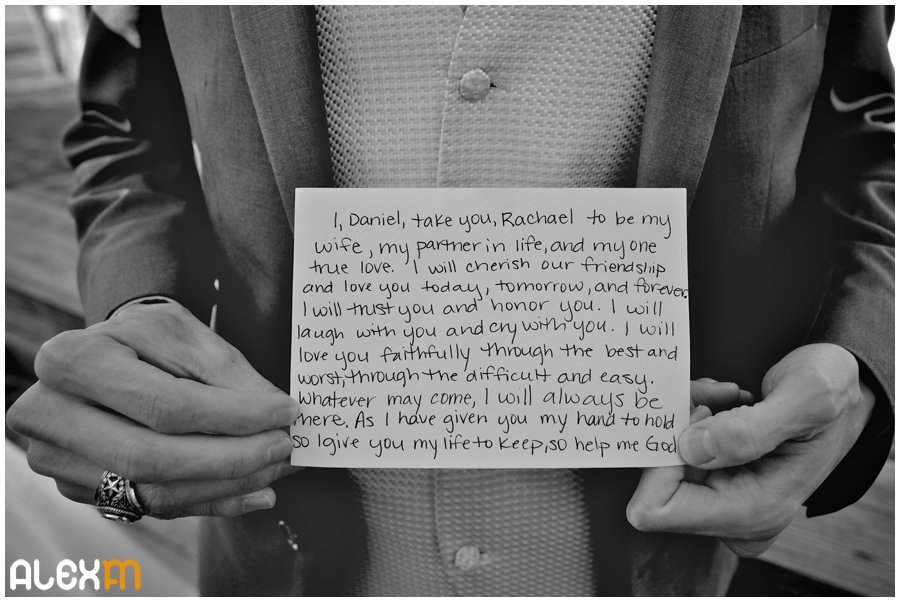 I, Daniel, take you, Rachael to be my
wife, my partner in life, and my one
true love. I will cherish our friendship
and love you today, tomorrow, and forever.
I will trust you and honor you. I will
laugh with you and cry with you. I will
love you faithfully through the best and
worst, through the difficult and easy.
Whatever may come, I will always be
there. As I have given you my hand to hold
so I give you my life to keep, so help me God
ALEXM